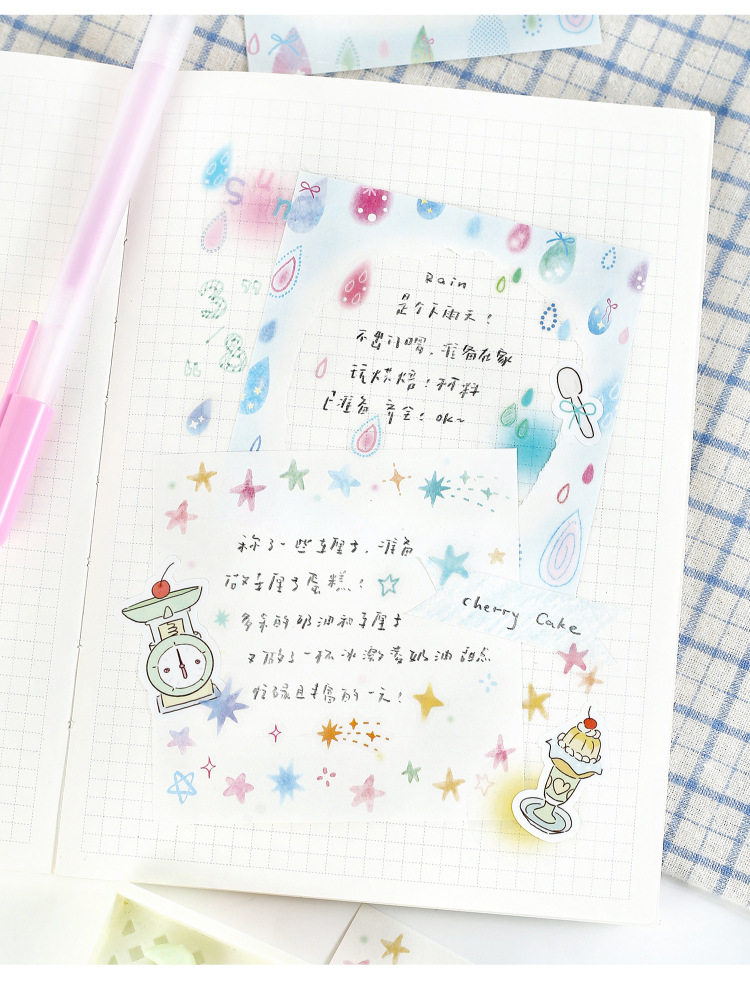 Sun
3
18
Rain
是个下雨天!
不出门喔,准备在家
玩烘焙!材料
已准备齐全!OK~
称了一些车厘子,准备
做车厘子蛋糕!
多余的奶油和车厘子
又做了一杯冰激凌奶油甜点
忙碌且丰富的一天!
Cherry Cake